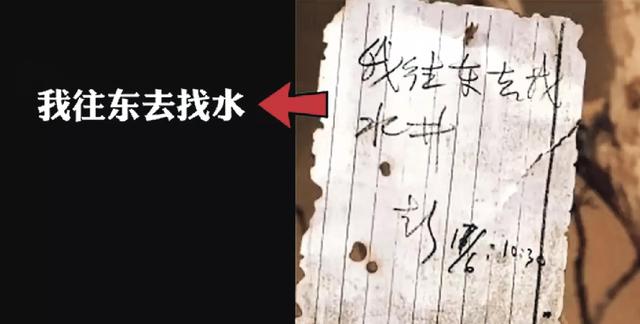 我往东去找水
我往东去找
水井
彭 17/6:10:30